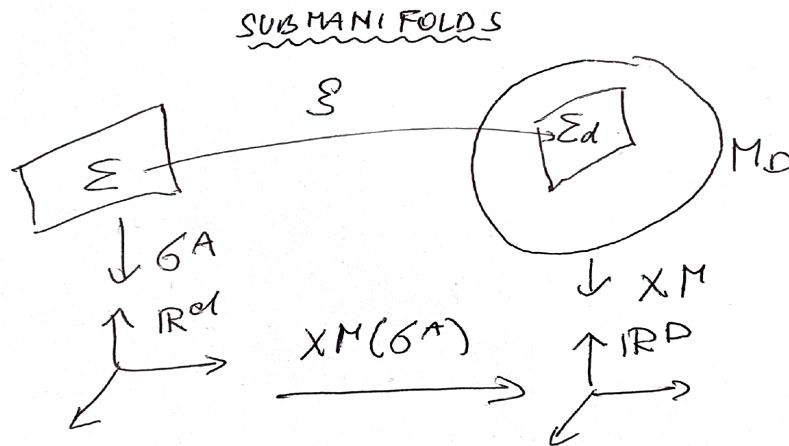 SUBMANIFOLDS
ξ
Σ
Σd
MD
σA
XM
Rd
XM(σA)
RD